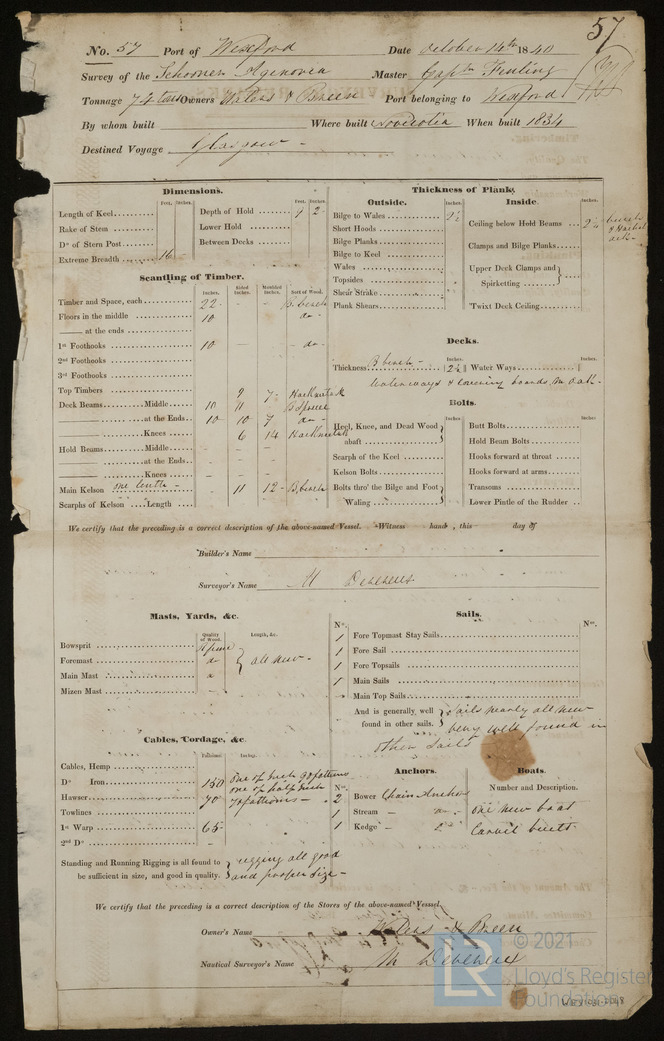 57
No. 57 Port of Wexford Date October 14th 1840
Survey of the Schooner Agenoria Master Captn
Tonnage 74 tons Owners Waters & Breen Port belonging to Wexford
By whom built Where built Novascotia When built 1834
Destined Voyage Glasgow
Dimensions.
Feet. Inches.
Length of Keel
Rake of Stem
Do of Stern Post
Extreme Breadth 16
Feet. Inches.
Depth of Hold 9 2
Lower Hold
Between Decks
Scantling of Timber.
Inches. Sided Inches. Moulded Inches. Sort of Wood.
Timber and Space, each 22 - - B. beech
Floors in the middle 10 do -
—— at the ends
1st Foothooks 10 - - do -
2nd Foothooks
3rd Foothooks
Top Timbers 9 7 - Hackmatack
Deck Beams Middle 10 11 B Spruce
—— at the Ends 10 10 7 do -
—— Knees 6 14 Hackmatack
Hold Beams Middle
—— at the Ends
—— Knees
Main Kelson one length - 11 12 - B. beech
Scarphs of Kelson Length
Thickness of Plank.
Outside.
Inches.
Bilge to Wales 2½
Short Hoods
Bilge Planks
Bilge to Keel
Wales
Topsides
Shear Strake
Plank Shears
Inside.
Inches.
Ceiling below Hold Beams 2¼ beech
&
Clamps and Bilge Planks
Upper Deck Clamps and
Spirketting
'Twixt Deck Ceiling
Decks.
Thickness B beech - Inches. 2½ Water Ways Inches.
Waterways & Covering boards, oak -
Bolts.
Inches.
Heel, Knee, and Dead Wood
abaft
Scarph of the Keel
Kelson Bolts
Bolts thro' the Bilge and Foot
Waling
Inches
Butt Bolts
Hold Beam Bolts
Hooks forward at throat
Hooks forward at arms
Transoms
Lower Pintle of the Rudder
We certify that the preceding is a correct description of the above-named Vessel. Witness hand , this day of
Builder's Name
Surveyor's Name M Devereux
Masts, Yards, &c.
Quality of Wood. Length, &c.
Bowsprit Spruce
Foremast do
Main Mast do
Mizen Mast
all new -
Sails.
No. No.
1 Fore Topmast Stay Sails
1 Fore Sail
1 Fore Topsails
1 Main Sails
- Main Top Sails
And is generally well
found in other sails.
Sails nearly all new
being well found in
other Sails
Cables, Cordage, &c.
Fathoms Inches.
Cables, Hemp
Do Iron 150 one of inch 90 fathoms
one of half inch
Hawser 70 70 fathoms -
Towlines
1st Warp 65
2nd Do
Standing and Running Rigging is all found to
be sufficient in size, and good in quality.
rigging all good
and proper size -
Anchors.
No.
2 Bower Chain Anchors
1 Stream - do -
1 Kedge - do
Boats.
Number and Description.
one new boat
Carvil built -
We certify that the preceding is a correct description of the Stores of the above-named Vessel.
Owner's Name Waters & Breen
Nautical Surveyor's Name M Devereux
LR
© 2021
Lloyd's Register
Foundation